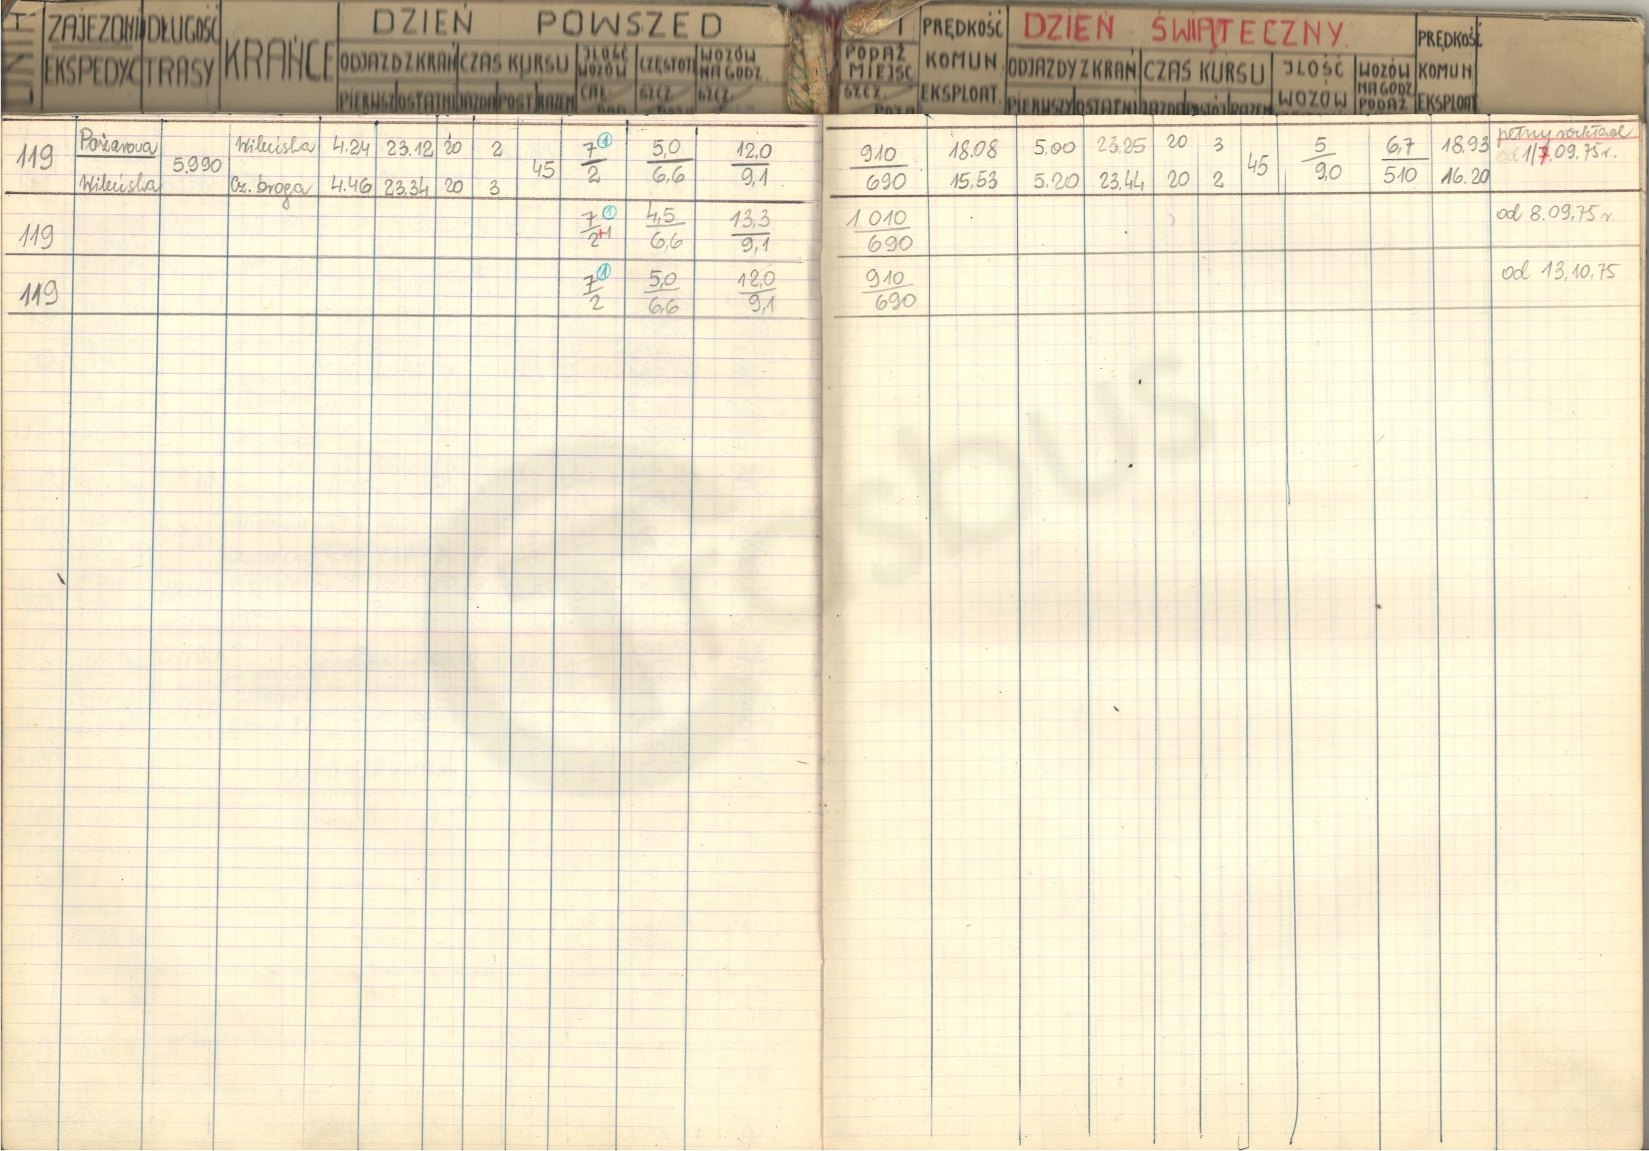 LINIA ZAJEZDNI DŁUGOŚĆ KRAŃCE DZIEŃ POWSZED
EKSPEDYC TRASY ODJAZD Z KRAŃ CZAS KURSU JLOŚĆ WOZÓW CZĘSTOTL WOZÓW NA GODZ.
PIERWSZ OSTATNI JAZDA POST RAZEM CAŁ. SZCZ. SZCZ.
PODAŻ MIEJSC PRĘDKOŚĆ KOMUN. EKSPLOAT. DZIEŃ ŚWIĄTECZNY. PRĘDKOŚĆ KOMUN EKSPLOAT
SZCZ. ODJAZDY Z KRAŃ CZAS KURSU JLOŚĆ WOZÓW WOZÓW NA GODZ PODAŻ
PIERWSZY OSTATNI JAZDA POSTÓJ RAZEM
119 Pożarowa 5.990 Wileńska 4.24 23.12 20 2 45 7 ① 5,0 12,0
Wileńska Cz. Droga 4.46 23.34 20 3 2 6,6 9,1
910 18.08 5.00 23.25 20 3 45 5 6,7 18.93 pełny rozkład
690 15,53 5.20 23,44 20 2 9,0 510 16.20 od 1/7.09.75r.
119 7 ① 4,5 13,3 1.010 od 8.09.75 r
2+1 6,6 9,1 690
119 7 ① 5,0 12,0 910 od 13.10.75
2 6,6 9,1 690
Trasbus